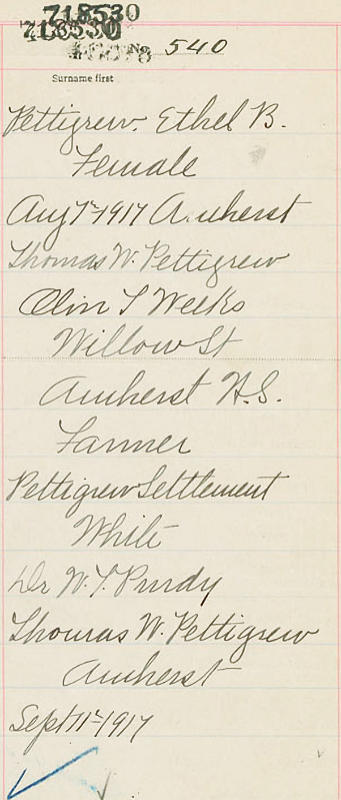 718530
718530
No 540
Surname first
Pettigrew, Ethel B.
Female
Aug 7th 1917 Amherst
Thomas W. Pettigrew
Olin T Weeks
Willow St
Amherst N.S.
Farmer
Pettigrew Settlement
White
Dr W. T. Purdy
Thomas W. Pettigrew
Amherst
Sept 11th 1917